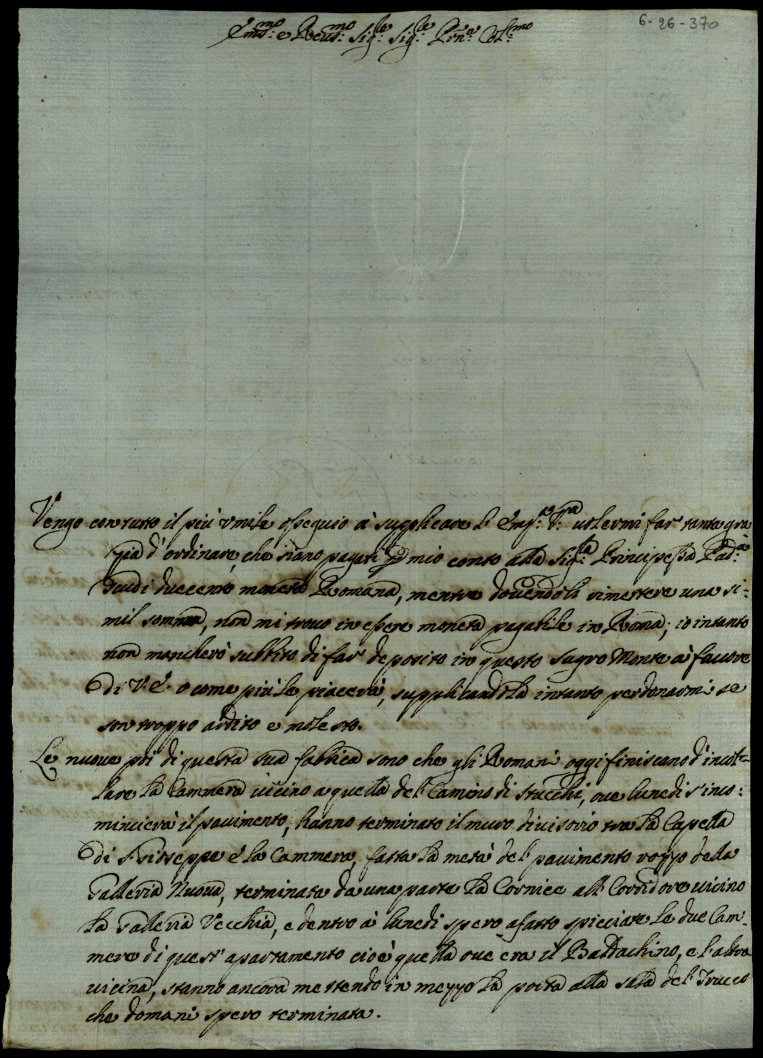 6-26-370
Em.mo e Reu.mo Sig.re Sig.re Prne Col.mo
Vengo con tutto il più vmile ossequio à supplicare l' Em.za V.ra uolermi far tanta gra
zia d' ordinare, che siano pagati per mio conto alla Sig.ra Principessa Pad.na
scudi ducento moneta Romana, mentre douendoli rimettere una si-
mil somma, non mi trouo in essere moneta pagabile in Roma; io intanto
non mancherò subbito di far deposito in questo Sagro Monte à fauore
di V.E. o come più le piacerà, supplicandola intanto perdonarmi se
son troppo ardito e molesto.
Le nuoue poi di questa sua fabrica sono che gli Romani oggi finiscano d' incol-
lare la Cammera uicino a quella del Camino di Stucchi, oue lunedi s'inco-
mincierà il pauimento; hanno terminato il muro diuisorio tra la Capella
di S. Giuseppe e la Cammera, fatta la metà del pauimento rozzo della
Galleria Nuoua, terminata da una parte la Cornice all Corridore uicino
la Galleria Vecchia, e dentro à lunedi spero afatto spicciare le due Cam-
mere di quest' apartamento cioè quella oue era il Baldachino, e l'altra
uicina, stanno ancora mettendo in mezzo la porta alla sala del Trucco
che domani spero terminata.